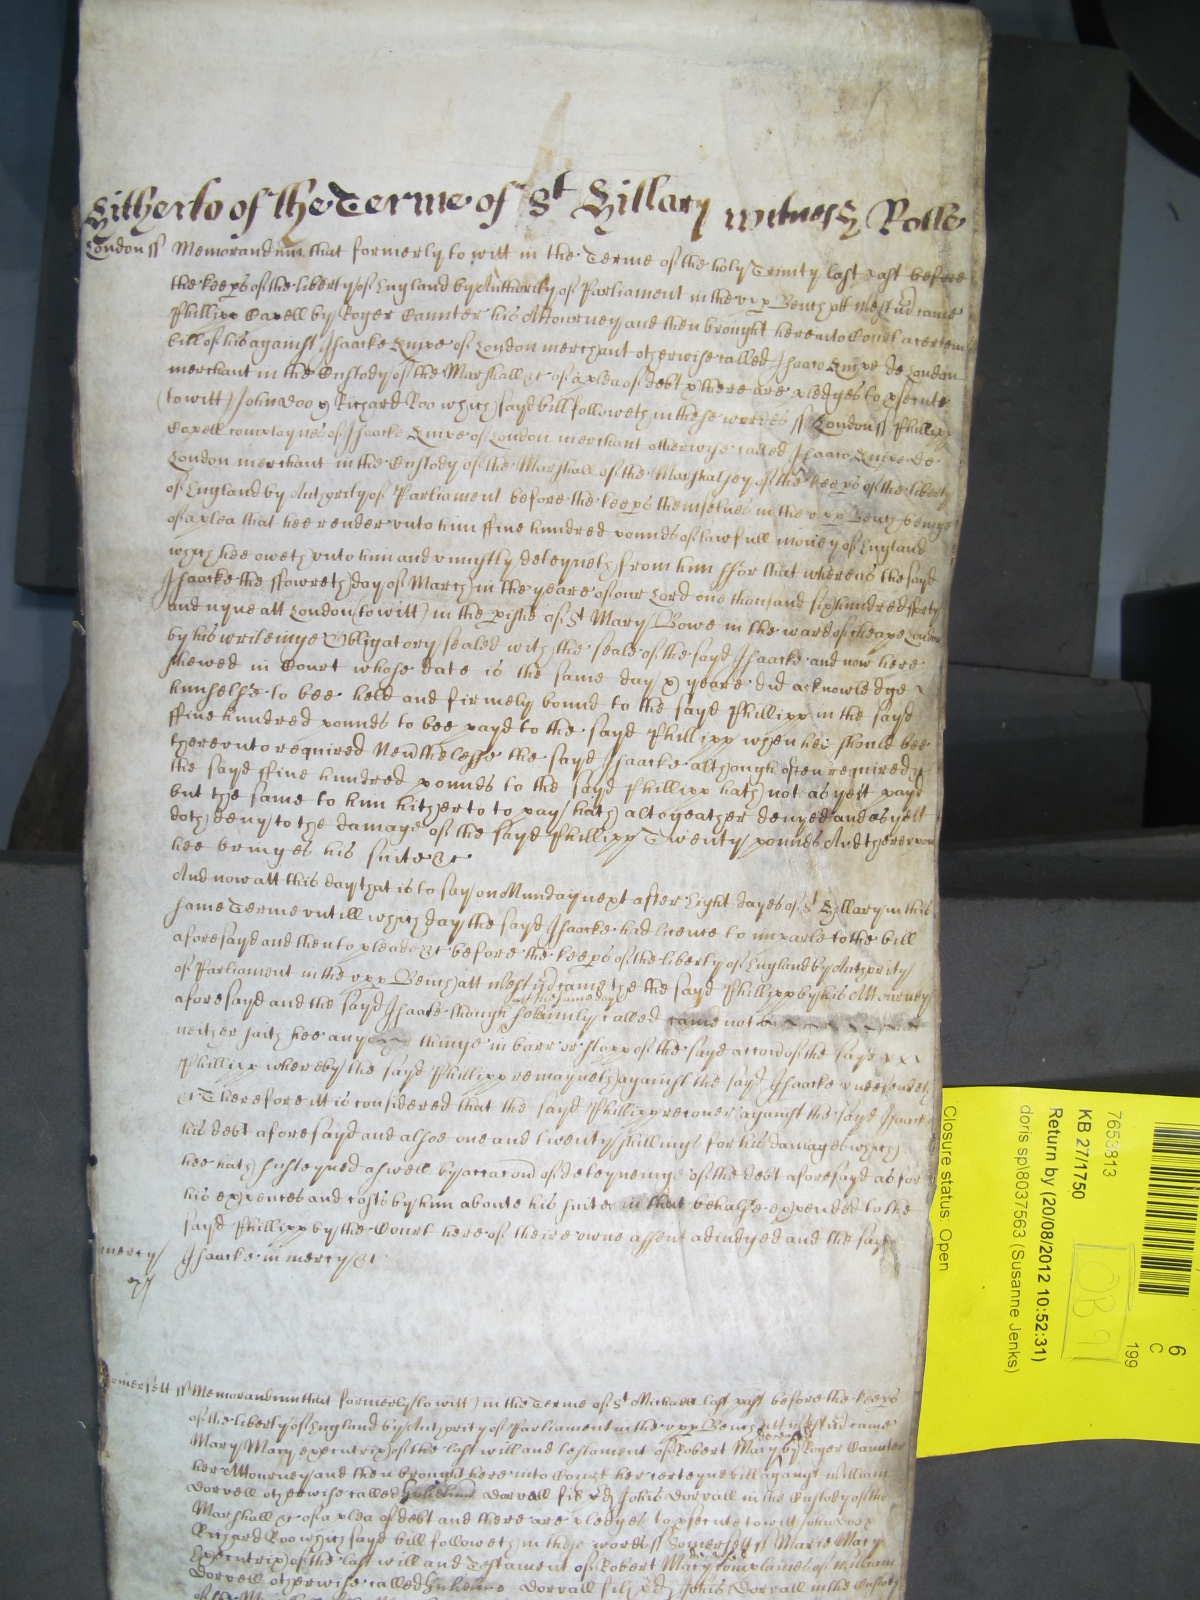 Hitherto of the Terme of St Hillary witness Rolle
London ss Memorandum that formerly to witt in the Terme of the holy Trinity last past before
the keeps of the liberty of England by Authority of Parliament in the vpp Bench att Westm came
Phillipp Capell by Roger Caunter his Attourney and then brought here into Court a certen
bill of his against Isaacke of London merchant otherwise called Isaaco de London
merchant in the Custody of the Marshall &c of a plea of debt & there are pledges to psecute
(to witt) John Doo & Richard Roo which sayd bill followeth in these wordes ss London ss Phillipp
Capell complaynes of Isaacke of London merchant otherwise called Isaaco de
London merchant in the Custody of the Marshall of the Marshalsey of the keeps of the liberty
of England by Authority of Parliament before the keeps themselues in the vpp Bench beinge
of a plea that hee render vnto him ffiue hundred pounds of lawfull money of England
which hee oweth vnto him and vniustly deteyneth from him ffor that whereas the sayd
Isaacke the ffowreth day of March in the yeare of our Lord one thousand six hundred fforty
and nyne att London (to witt) in the pishe of St Mary Bowe in the ward of cheape London
by his writeinge Obligatory sealed with the seale of the sayd Isaacke and now here
shewed in Court whose date is the same day & yeare did acknowledge
himselfe to bee held and firmely bound to the sayd Phillipp in the sayd
ffiue hundred pounds to bee payd to the sayd Phillipp when hee should bee
therevnto required Neutheless the sayd Isaacke although often required &c
the sayd ffiue hundred pounds to the sayd Phillipp hath not as yett payd
but the same to him hitherto to pay hath altogeather denyed and as yett
doth deny to the damage of the sayd Phillipp Twenty pounds And therevpon
hee bringes his suite &c
And now att this day that is to say on Munday next after Eight dayes of St Hillary in this
same Terme vntill which day the sayd Isaacke had licence to imparle to the bill
aforesayd and then to pleade &c before the keeps of the liberty of England by Authority
of Parliament in the vpp Bench att Westm came the sayd Phillipp by his Attourney
att the same day
aforesayd and the sayd Isaacke though solemnly called came not
neither saith hee any thinge in barr or stopp of the sayd accion of the sayd
Phillipp whereby the sayd Phillipp remayneth against the sayd Isaacke vndefended
&c Therefore itt is considered that the sayd Phillipp recouer against the sayd Isaacke
his debt aforesayd and alsoe one and twenty shillings for his damages which
hee hath susteyned aswell by occacion of deteyneinge of the debt aforesayd as for
his expences and costs by him aboute his suite in that behalfe expended to the
sayd Phillipp by the Court here of theire owne assent adiudged and the sayd
mercy Isaacke in mercy &c
Somersett ss Memorandum that formerly (to witt) in the Terme of St Michaell last past before the keeps
of the liberty of England by Authority of Parliament in the vpp Bench att Westm came
Mary Macy executrix of the last will and testament of Robert Macy by Roger Caunter
her Attourney and then brought here into Court her certeyne bill against William
Dorvell otherwise called Dorvell fil & Johis Dorvall in the Custody of the
Marshall &c of a plea of debt and there are pledges to psecute to witt John Doo &
Richard Roo which sayd bill followeth in these words ss Somersett ss Marie Macy
Executrix of the last will and Testament of Robert Macy complaines of William
Dorvell otherwise called Dorvall fil & Johis Dorvall in the Custody
Closure status: Open
doris sp\8037563 (Susanne Jenks)
Return by (20/08/2012 10:52:31)
KB 27/1750
7653813
199
C
6